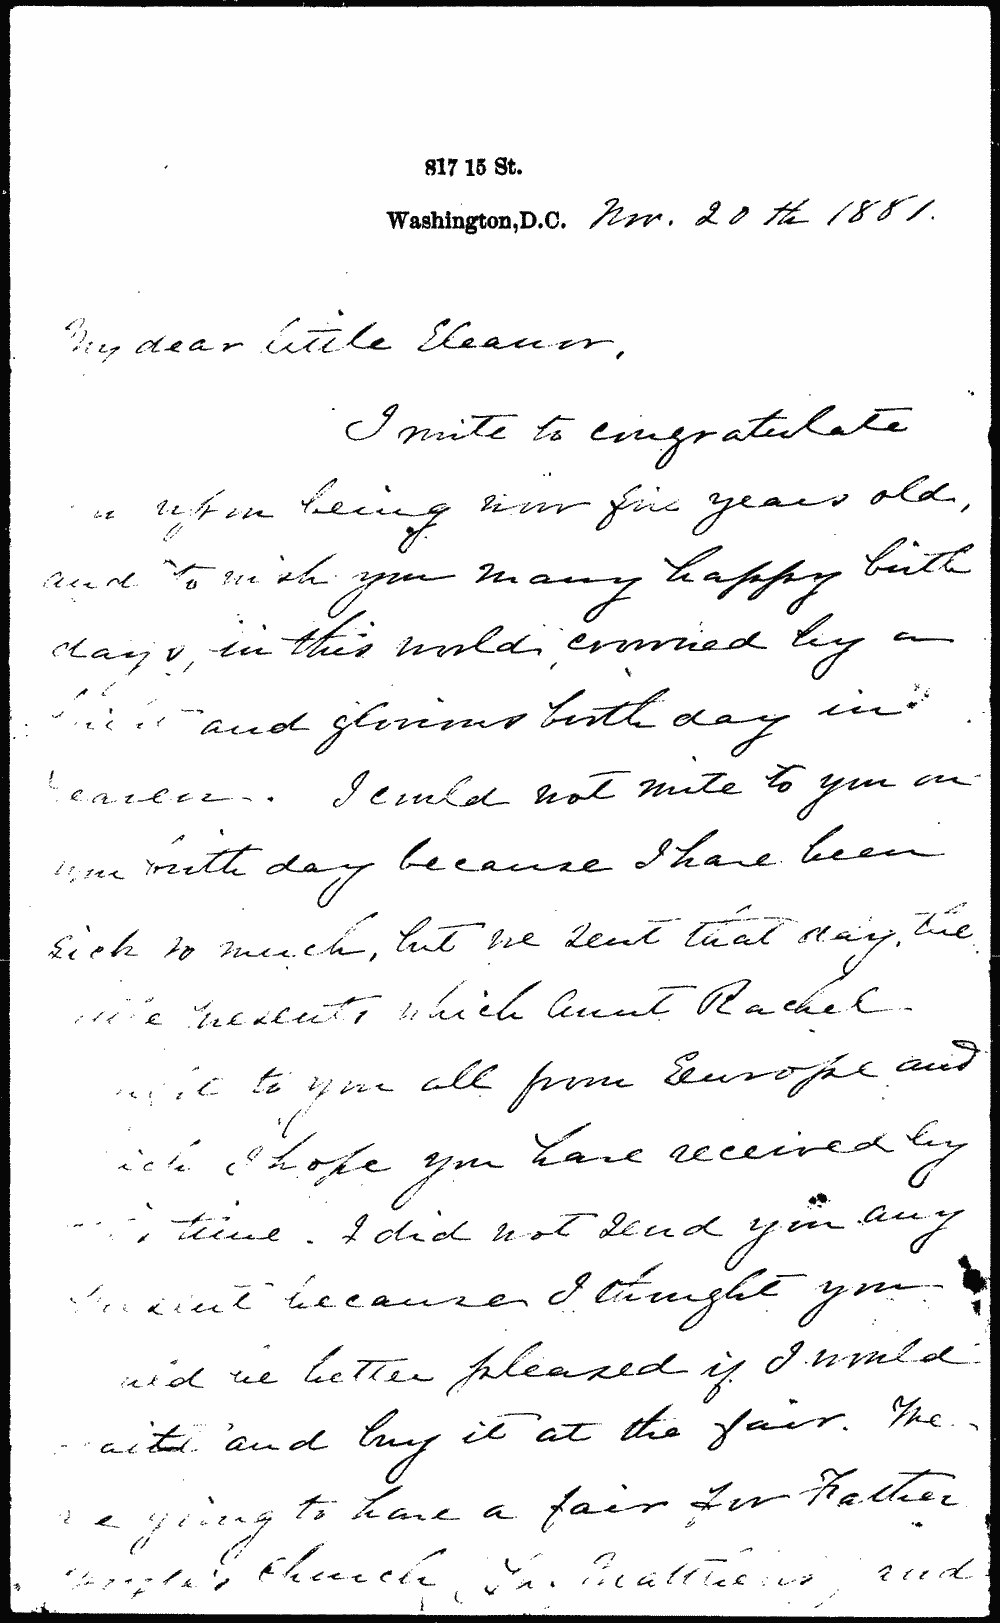 817 15 St.
Washington, D.C. Nov. 20th 1881.
My dear little Eleanor,
I write to congratulate
upon being now five years old,
and to wish you many happy birth
days, in this world, crowned by a
and glorious birth day in
heaven. I could not write to you on
your birth day because I have been
sick so much, but we sent that day, the
presents which Aunt Rachel
to you all from Europe and
which I hope you have received by
this time. I did not send you any
present because I thought you
would be better pleased if I would
wait and buy it at the fair. We
are going to have a fair for Father
church, St. Matthews, and